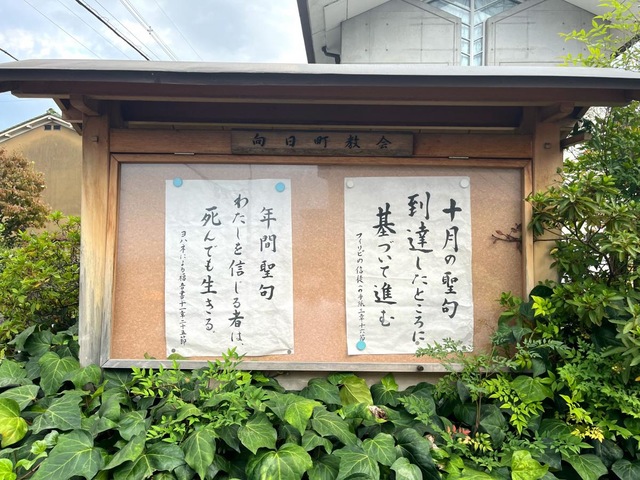 向日町教会
十月の聖句
到達したところに
基づいて進む
フィリピの信徒への手紙三章十六節
年間聖句
わたしを信じる者は、
死んでも生きる。
ヨハネによる福音書十一章二十五節